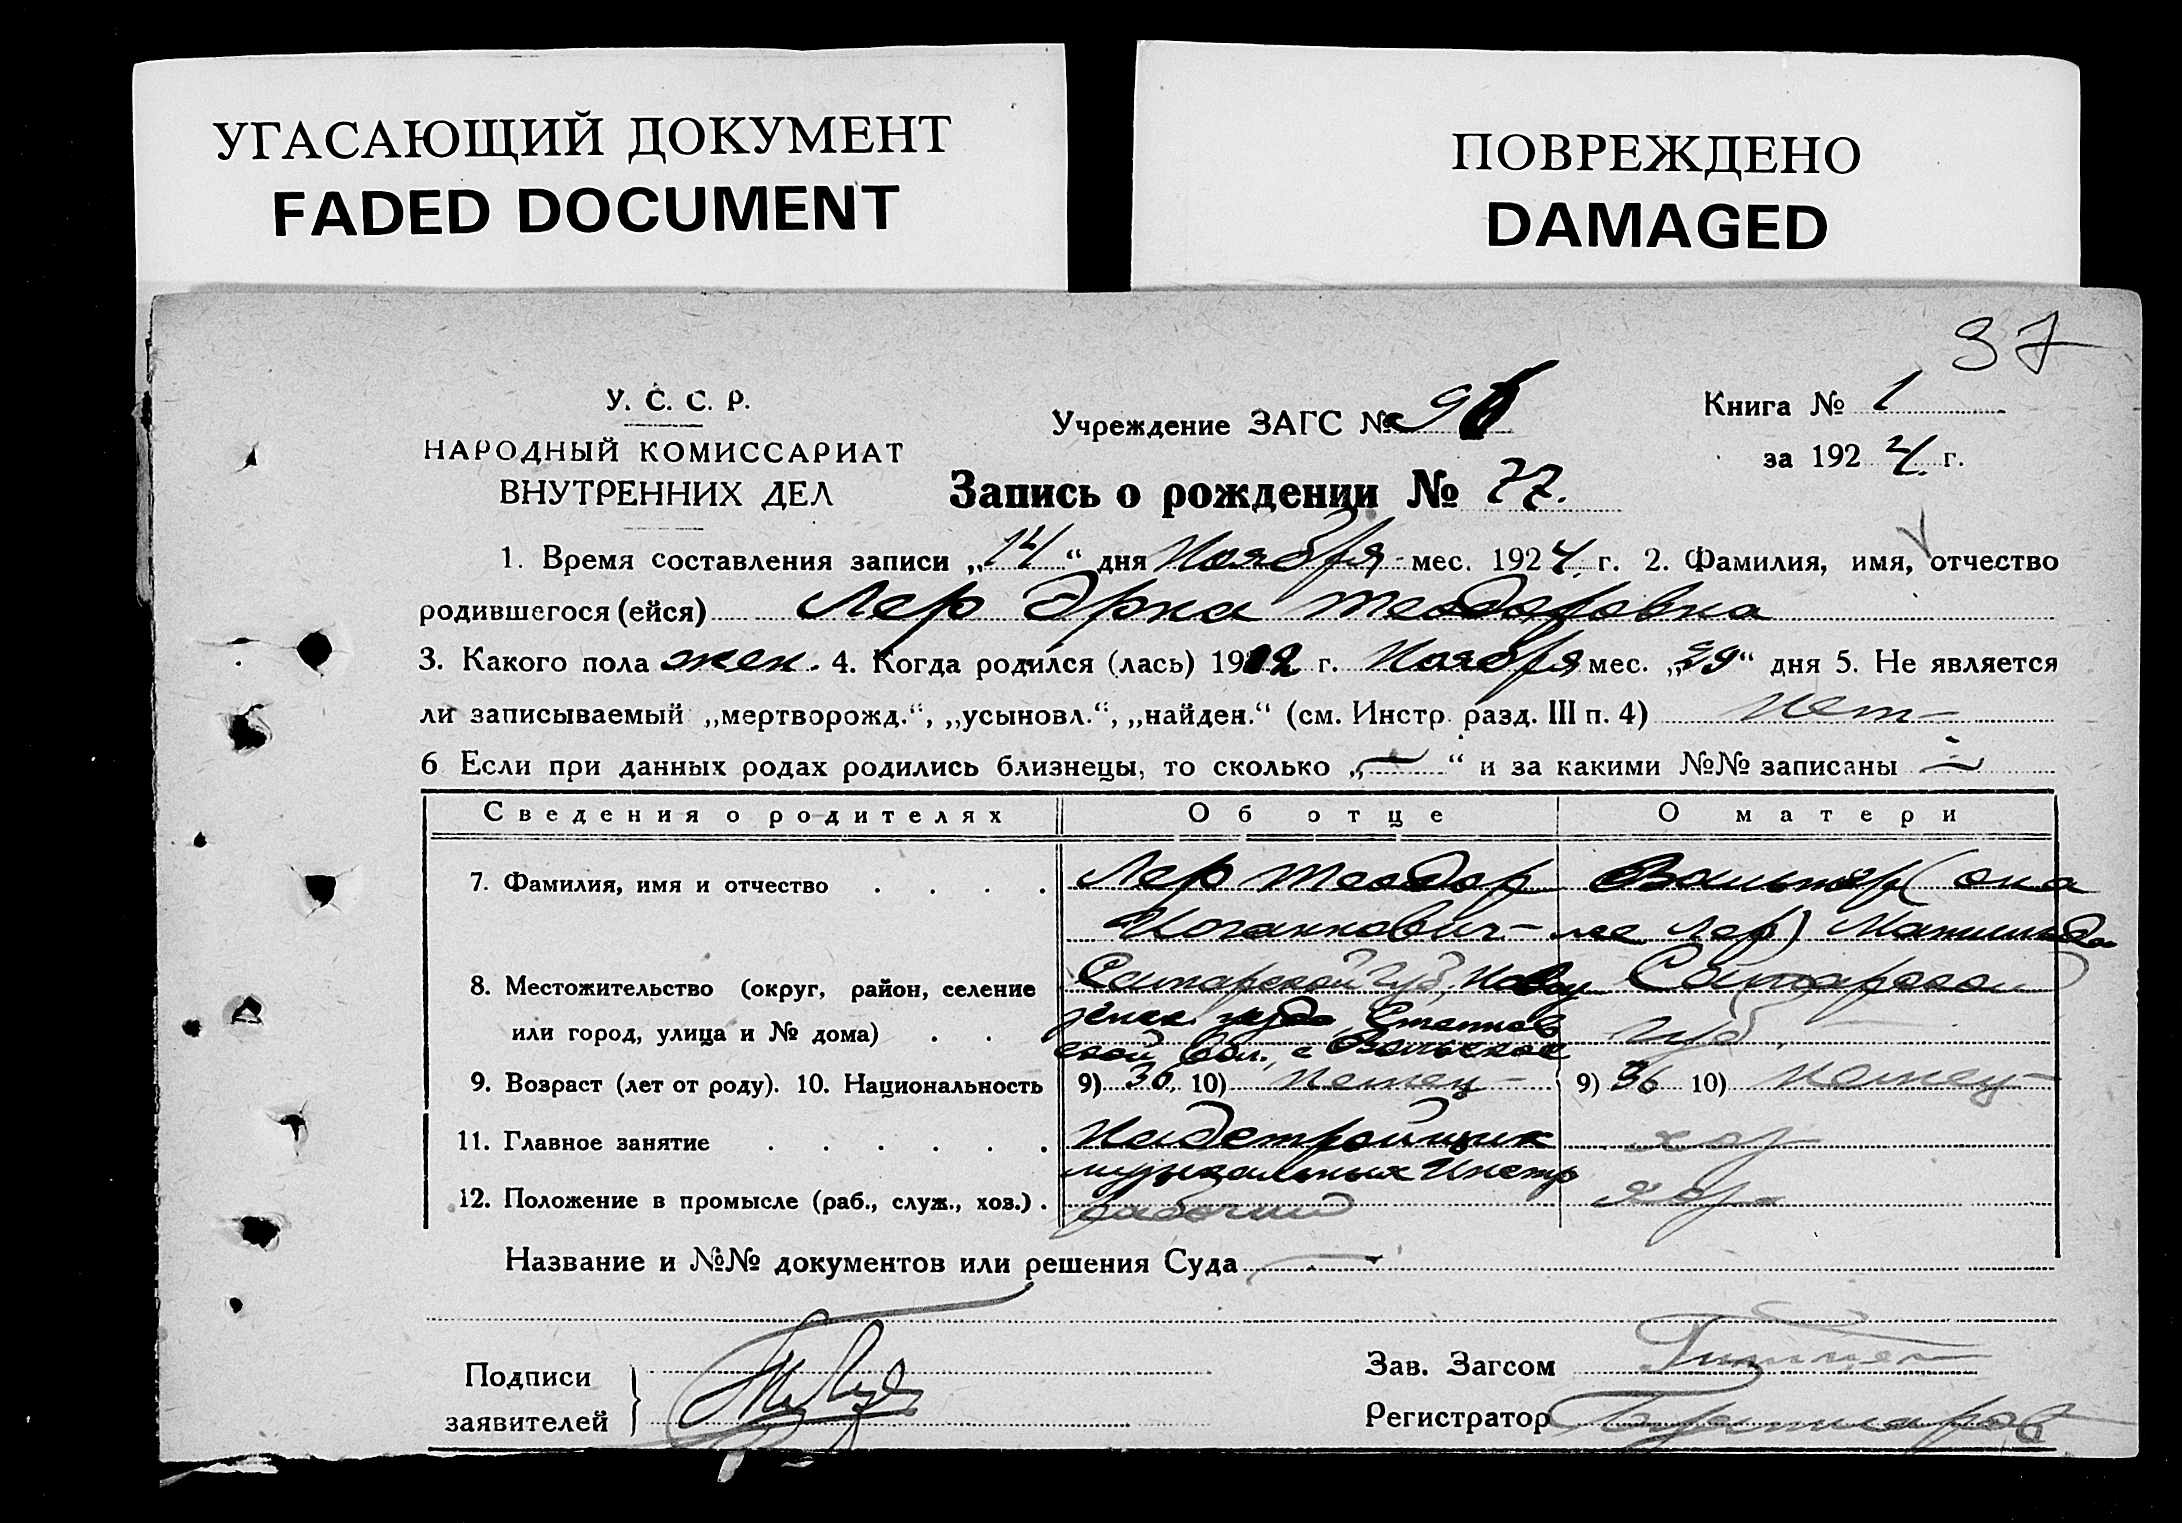 УГАСАЮЩИЙ ДОКУМЕНТ
FADED DOCUMENT
ПОВРЕЖДЕНО
DAMAGED
37
У. С. С. Р.
НАРОДНЫЙ КОМИССАРИАТ
ВНУТРЕННИХ ДЕЛ
Учреждение ЗАГС №
Книга № 1
за 1924 г.
Запись о рождении № 77.
1. Время составления записи „14“ дня Ноября мес. 1924 г. 2. Фамилия, имя, отчество
родившегося (ейся) Лер Эрна Теодоровна
3. Какого пола жен. 4. Когда родился (лась) 19 2 г. Ноября мес. „29“ дня 5. Не является
ли записываемый „мертворожд.“, „усыновл.“, „найден.“ (см. Инстр. разд. III п. 4) Нет
6 Если при данных родах родились близнецы, то сколько „—“ и за какими №№ записаны —
Сведения о родителях Об отце О матери
7. Фамилия, имя и отчество Лер Теодор Вальтер (она
Иоганнович же Лер) Матильда
8. Местожительство (округ, район, селение Самарской губ, Самарской
или город, улица и № дома) губ.
ской Вол., с
9. Возраст (лет от роду). 10. Национальность 9) 30 10) Немец 9) 36 10) Немец
11. Главное занятие Надстройщик хоз
музыкальных Инстр
12. Положение в промысле (раб., служ., хоз.) рабочий хоз
Название и №№ документов или решения Суда —
Подписи
заявителей
Зав. Загсом
Регистратор